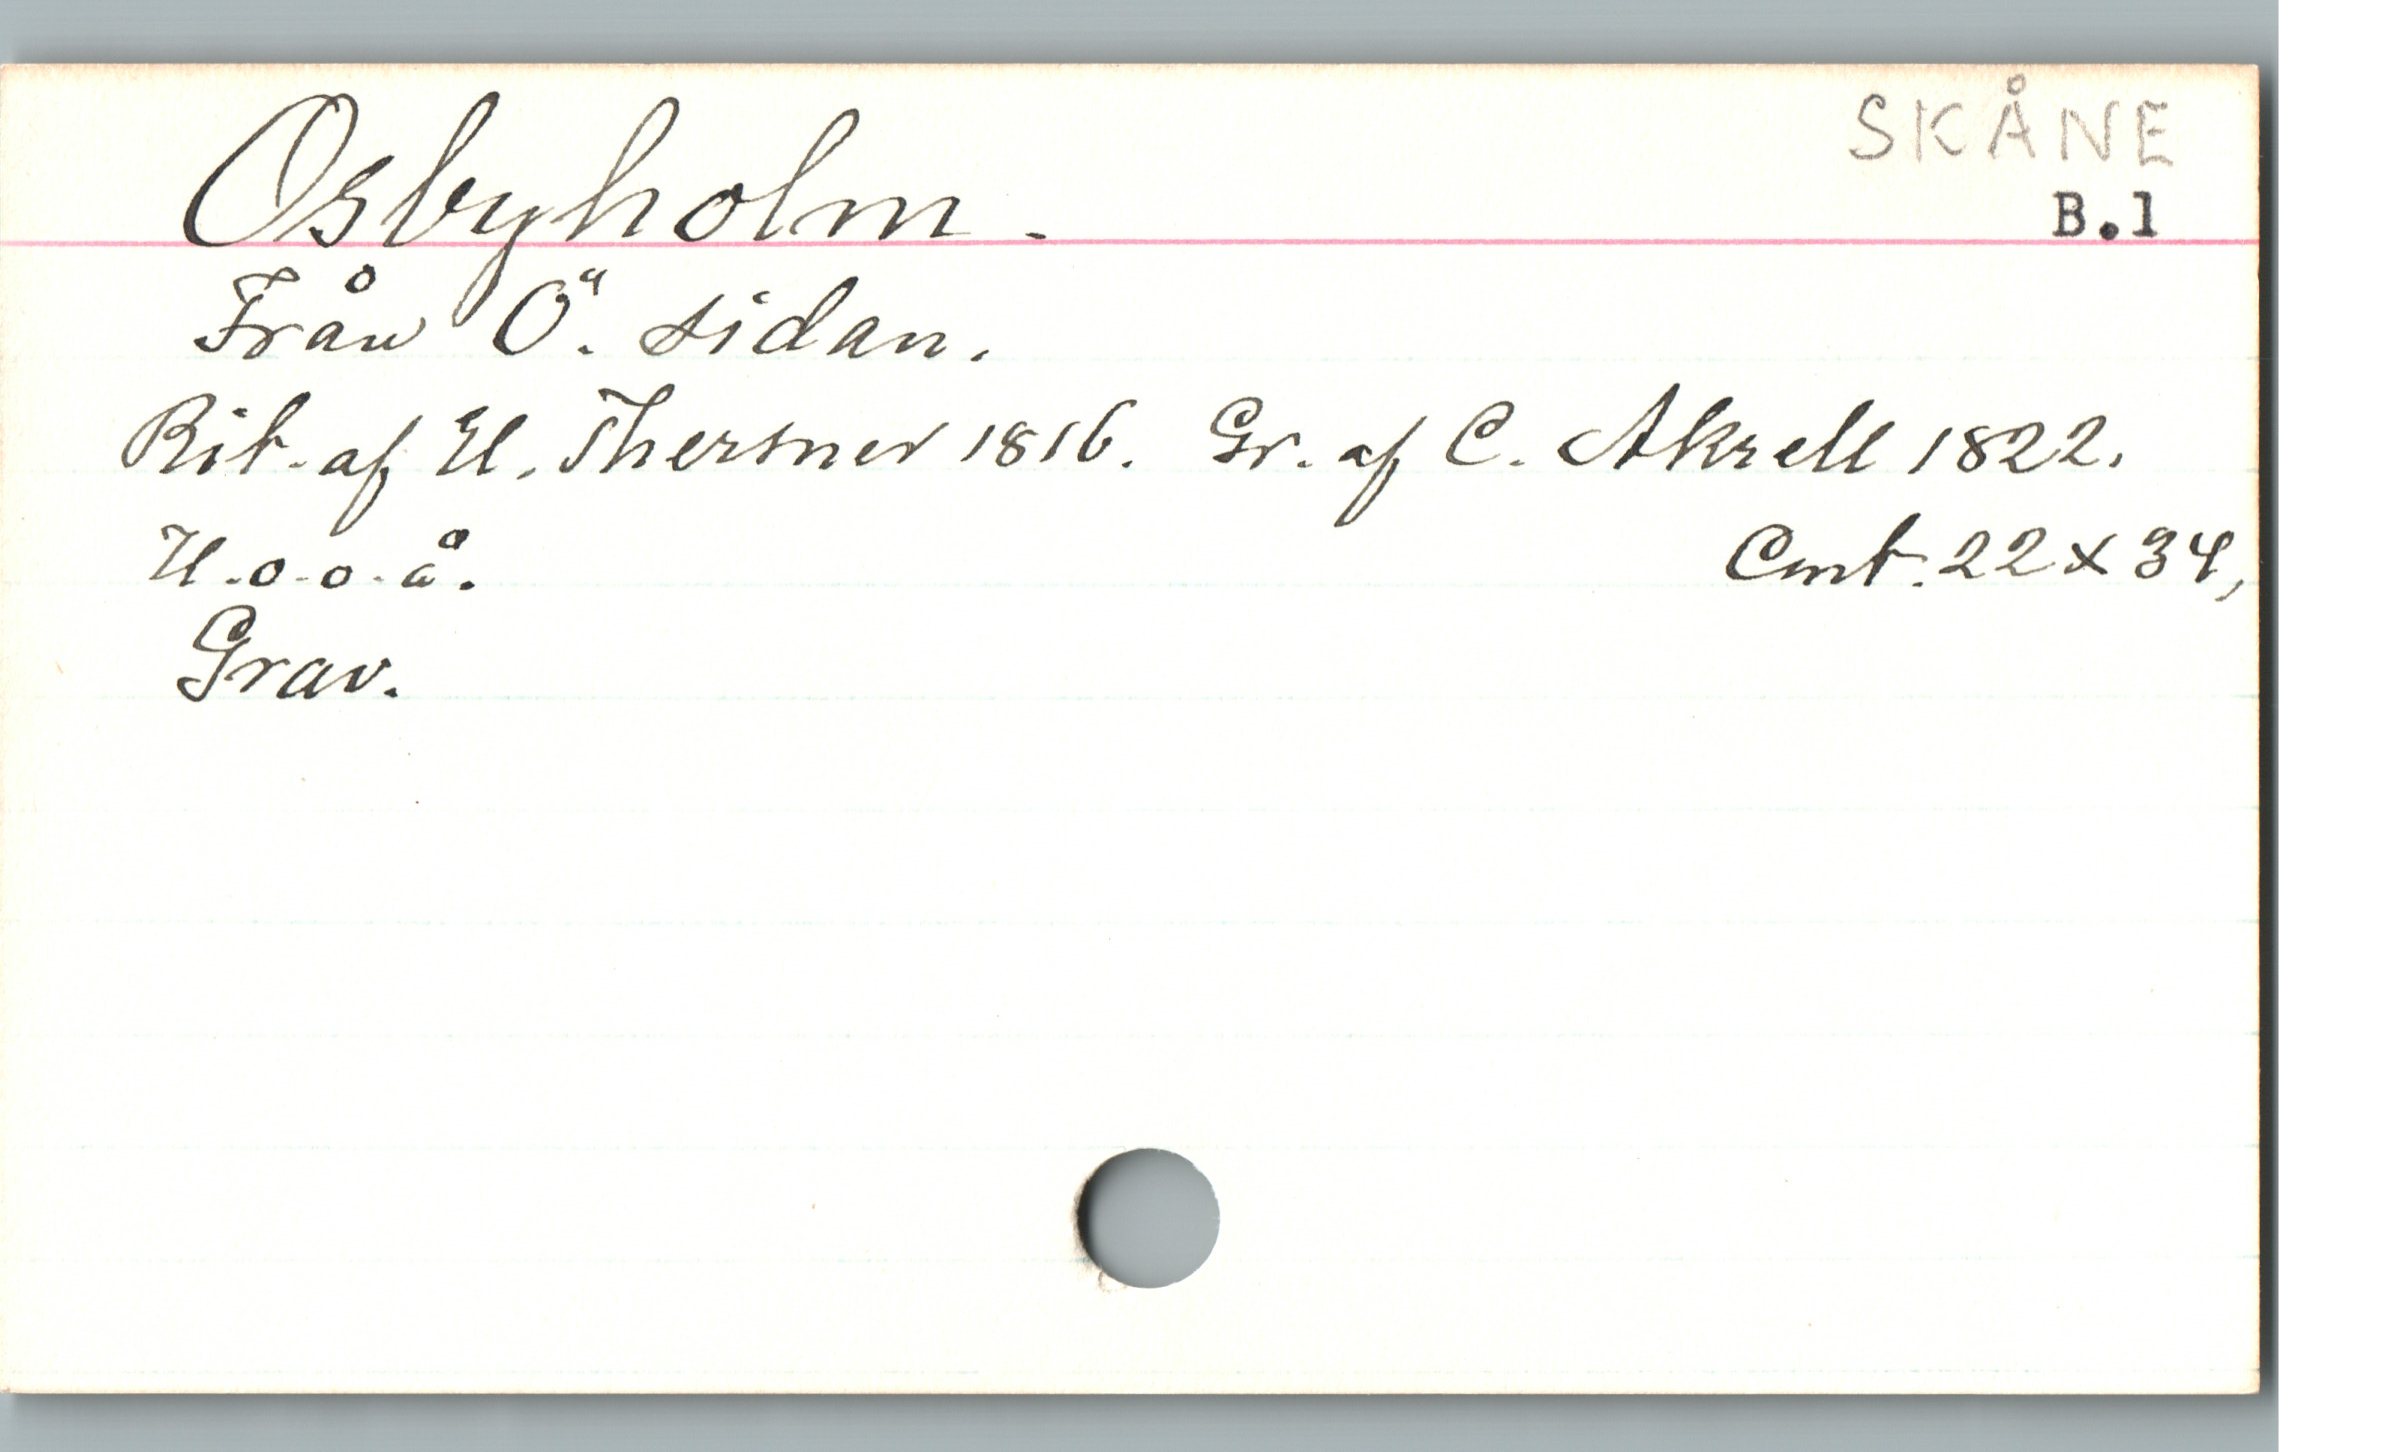 Osbyholm.
SKÅNE
B.1
Från Ö. sidan.
Rit. af U. Thersner 1816. Gr. af C. Akrell 1822.
U.o.o.å.
Cmt. 22 x 34,
Grav.